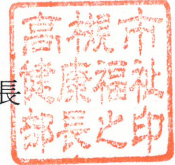 長
高槻市
健康福祉
部長之印